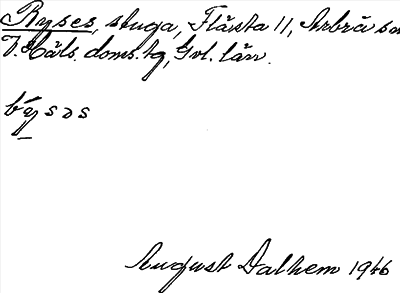 Byses, stuga, Flästa 11, Arbrå sn
V. Häls. doms.tg, Gvl. län.
býsəs
August Dalhem 1946